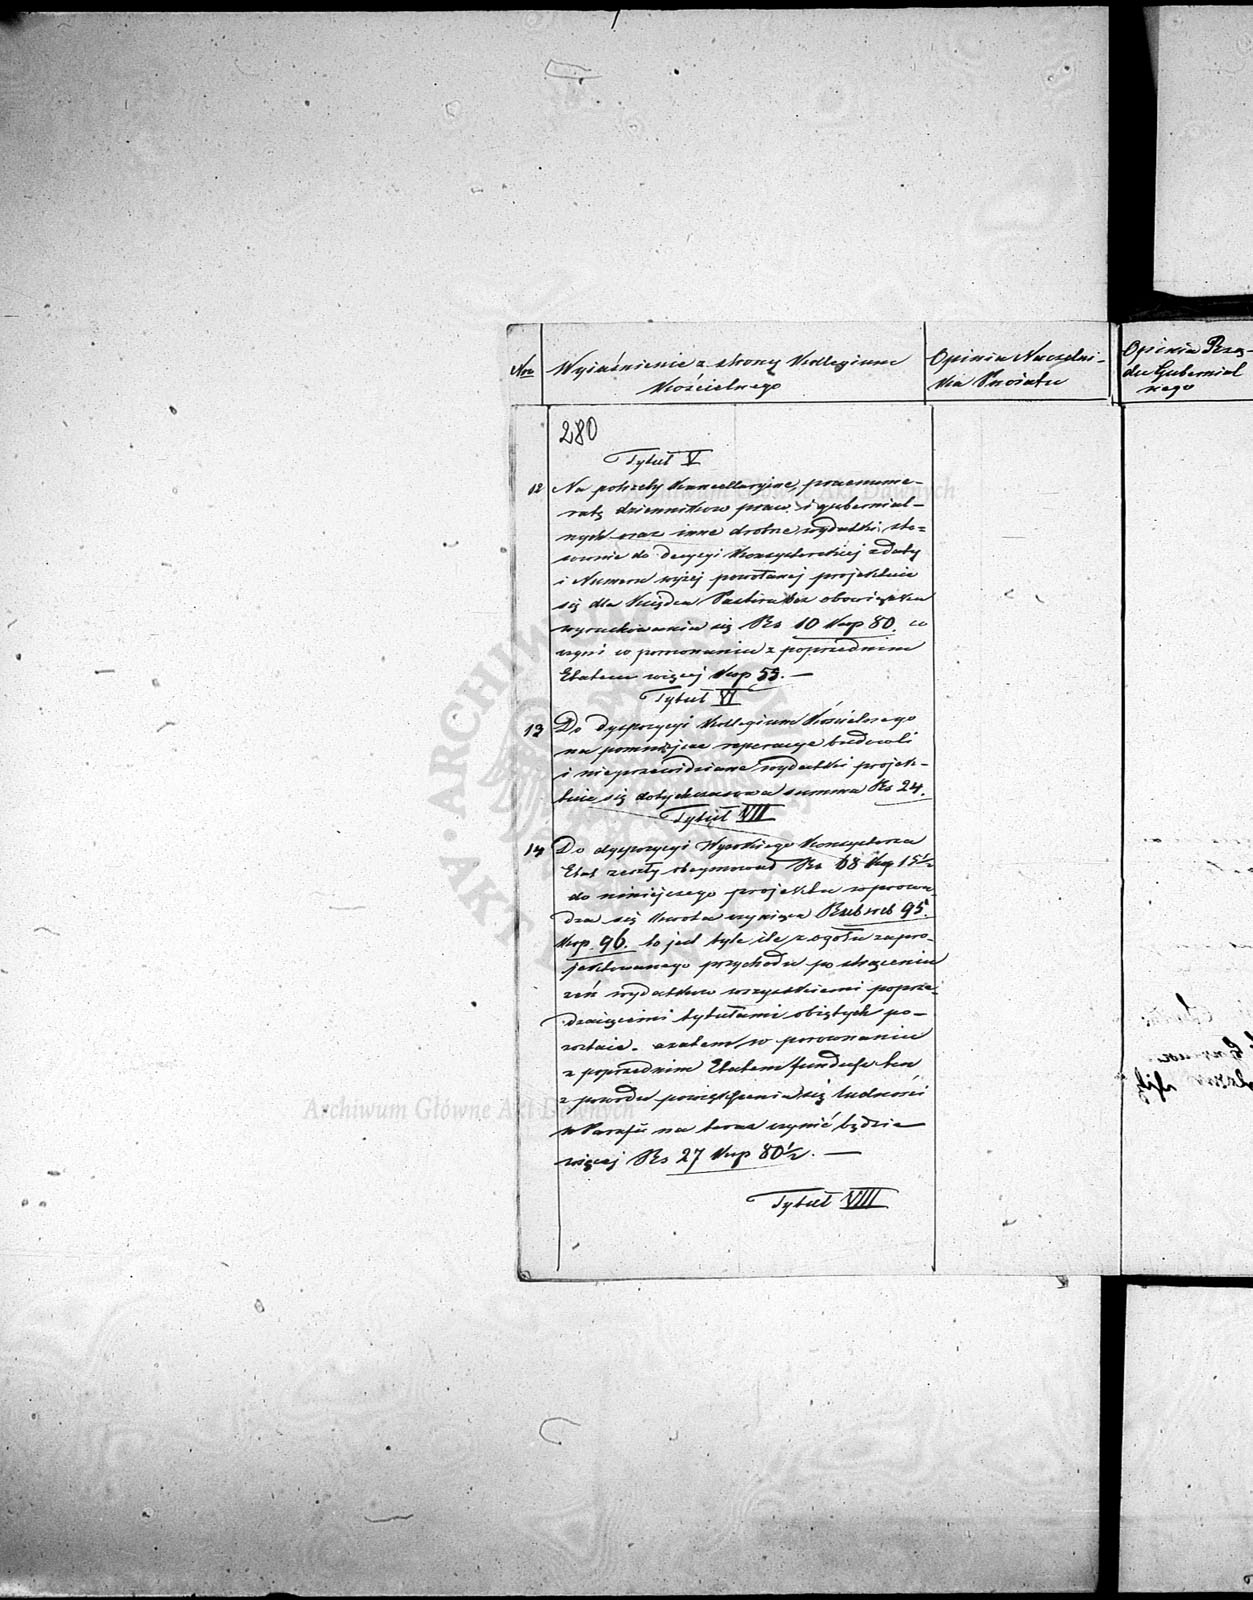 Nra
Wyjaśnienie z strony Kollegium
Kościelnego
Opinia Naczelni-
ka Powiatu
Opinia Rzą-
du Gubernial
nego
280
Tytuł V
12 Na potrzeby Kancellaryine, prenume-
ratę dzienników praw i gubernial-
nych oraz inne drobne wydatki sto-
sownie do decyzyi Konsystorskiej z daty
i Numeru wyżej powołanej projektuie
się dla Księdza Pastora bez obowiązku
wyrachowania się Rs 10 Kop 80. co
czyni w porównaniu z poprzednim
Etatem więcej Kop 55. —
Tytuł VI
13 Do dyspozycyi Kollegium Kościelnego
na pomniejsze reperacye budowli
i nieprzewidziane wydatki projek-
tuie się dotychczasowa summa Rs 24.
Tytuł VII
14 Do dyspozycyi Wysokiego Konsystorza
Etat zeszły obejmował Rs 68 Kop 15½
do niniejszego projektu wprowa-
dza się kwota czyniąca Rubsreb 95.
Kop. 96. to jest tyle ile z ogółu zapro-
jektowanego przychodu po strąceniu
zeń wydatków wszystkiemi poprze-
dzaiącemi tytułami obiętych po-
zostaie. a zatem w porównaniu
z poprzednim Etatem fundusz ten
z powodu powiększenia się ludności
w Parafii na teraz czynić będzie
więcej Rs 27 Kop 80½. —
Tytuł VIII
Archiwum Główne Akt Dawnych
Archiwum Główne Akt Dawnych